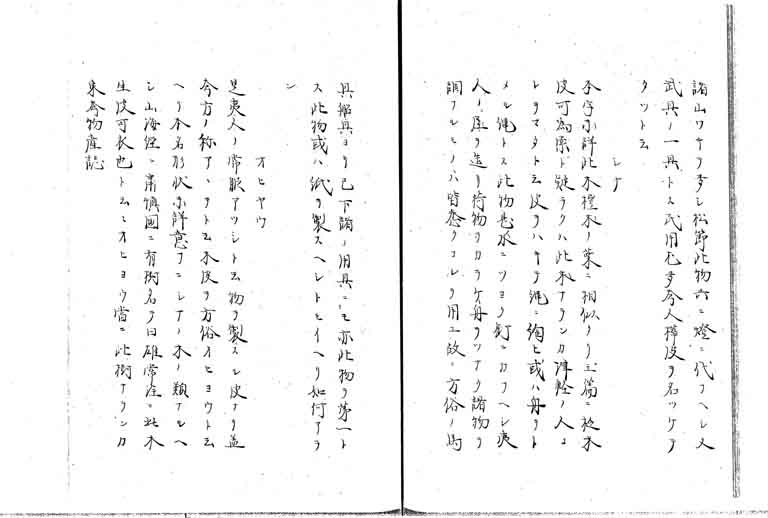 諸山ワキテ多シ松節此物六ニ燈ニ代フヘシ又
武具ノ一具トス民用尤多夺人樺皮ヲ名ツケテ
タツト云
シナ
本字不詳此木檀木ノ葉ニ相似タリ玉篇ニ柀木
皮可為索ト疑ラクハ此木ナランカ津軽ノ人コ
レヲマタト云皮ヲハキテ縄ニ綯ヒ或ハ舟ヲト
メル縄トス此物甚水ニツヨク釘ニカフヘシ夷
人ノ屋ヲ造リ荷物ヲカラケ舟ヲツナク諸物ヲ
調フルモノハ皆悉クコレヲ用ユ故ニ方俗ノ馬
具船具ヨリ已下諸ノ用具ニモ亦此物ヲ第一ト
ス此物或ハ紙ヲ製スヘシトモイヘリ如何アラ
ン
オヒヤウ
是夷人ノ常服アツシト云物ヲ製スル皮ナリ蓋
夺方ノ称アハタト云木皮ヲ方俗オヒヨウト云
ヘリ本名形状不詳意フニシナノ木ノ類ナルヘ
シ山海経ニ粛慎国ニ有樹名ヲ曰雄常注ニ此木
生皮可衣也ト云ヽオヒヨウ當ニ此樹ナランカ
東夺物産誌